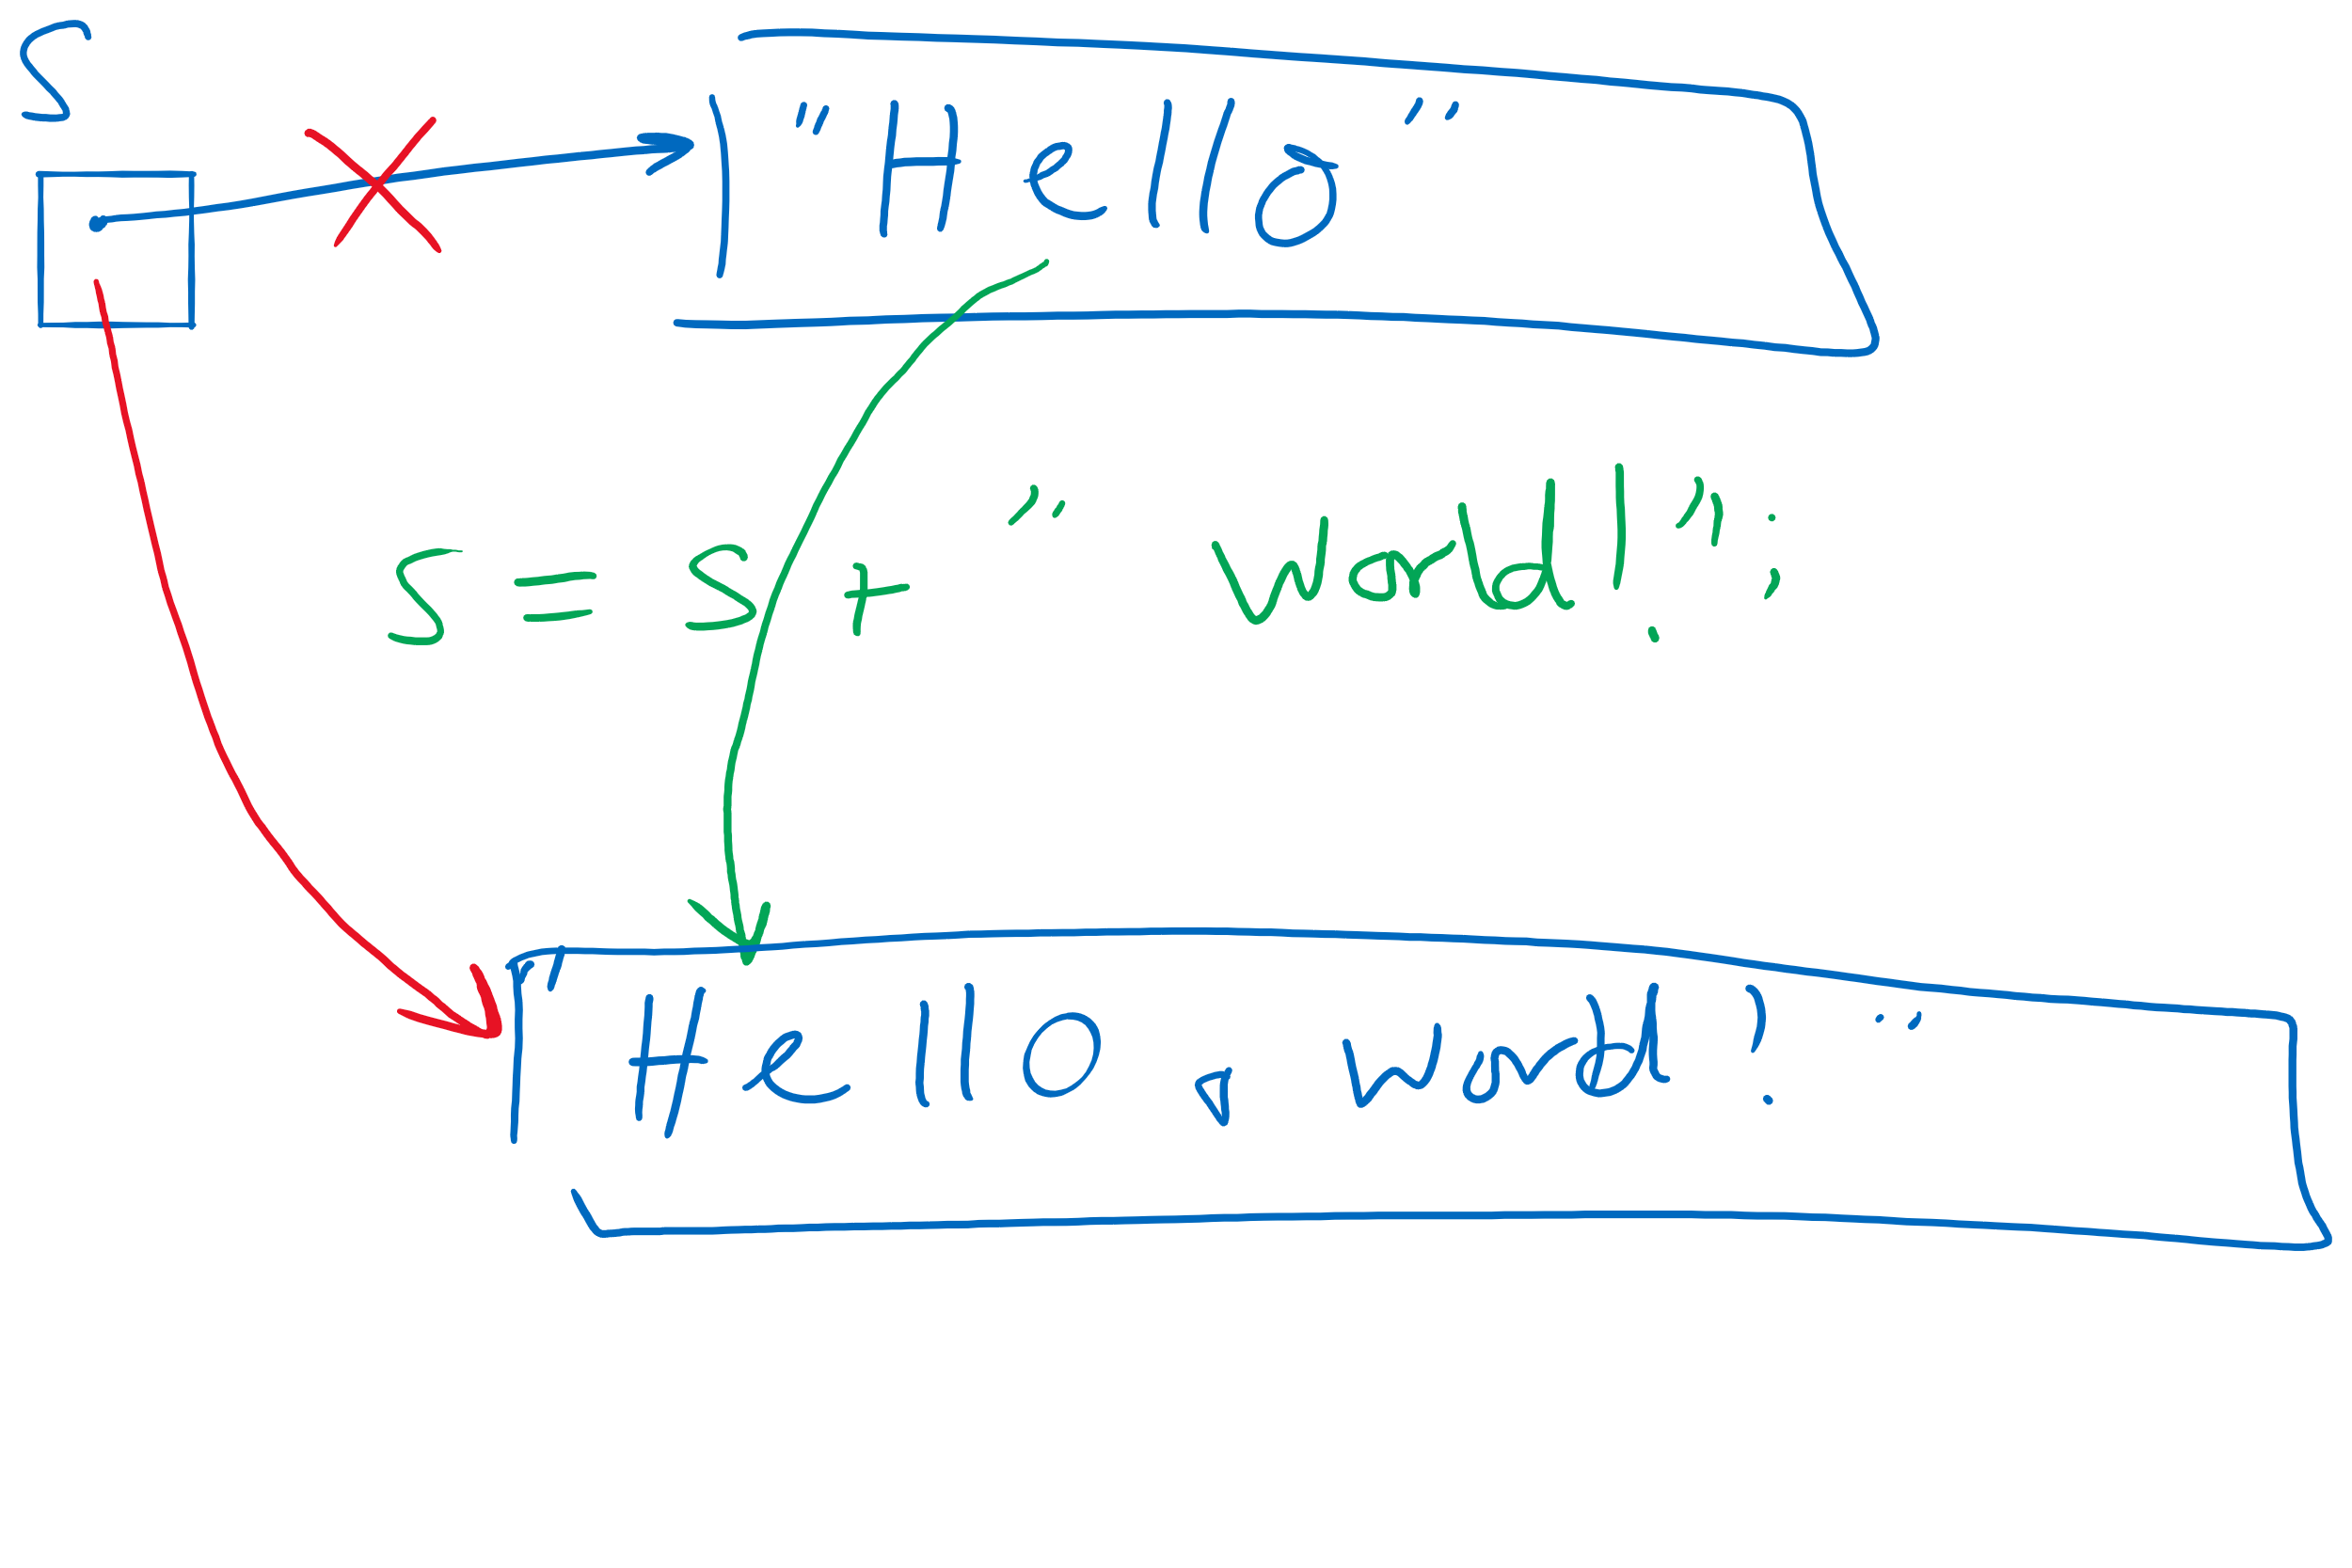 S
"Hello"
S = S + " world!";
"Hello, world!"